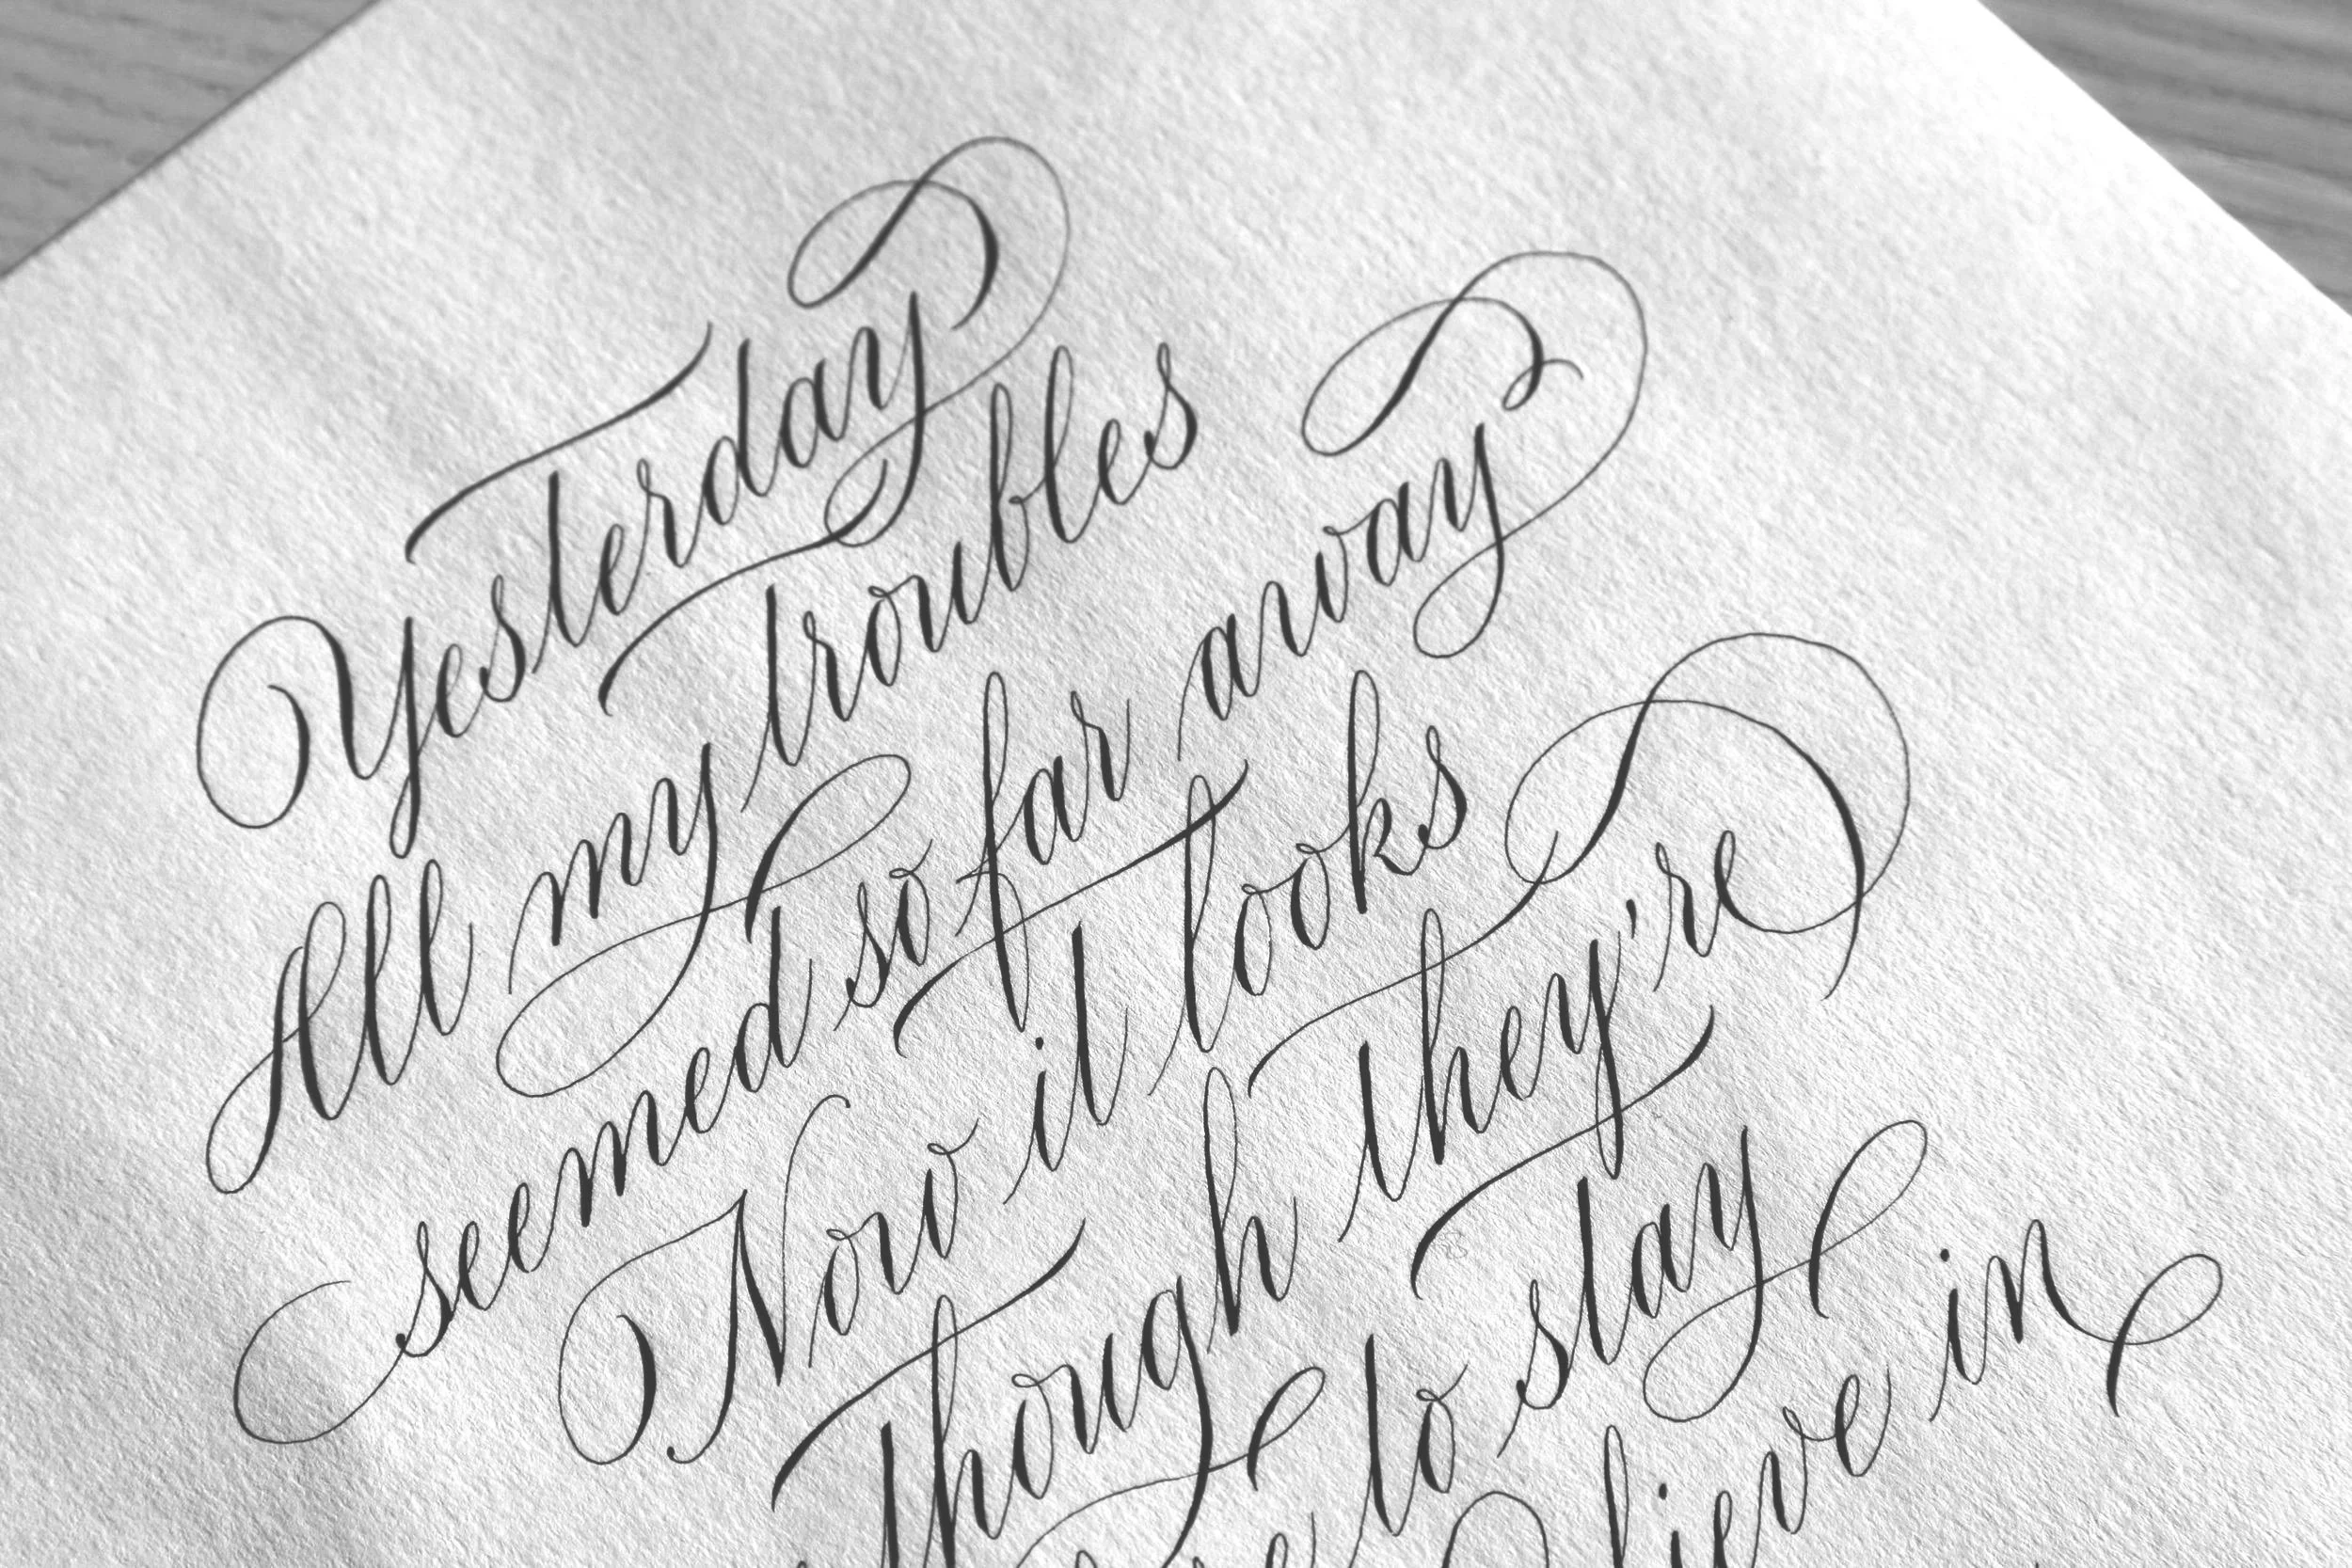 Yesterday
All my troubles
seemed so far away
Now it looks
Though they're
to stay
in